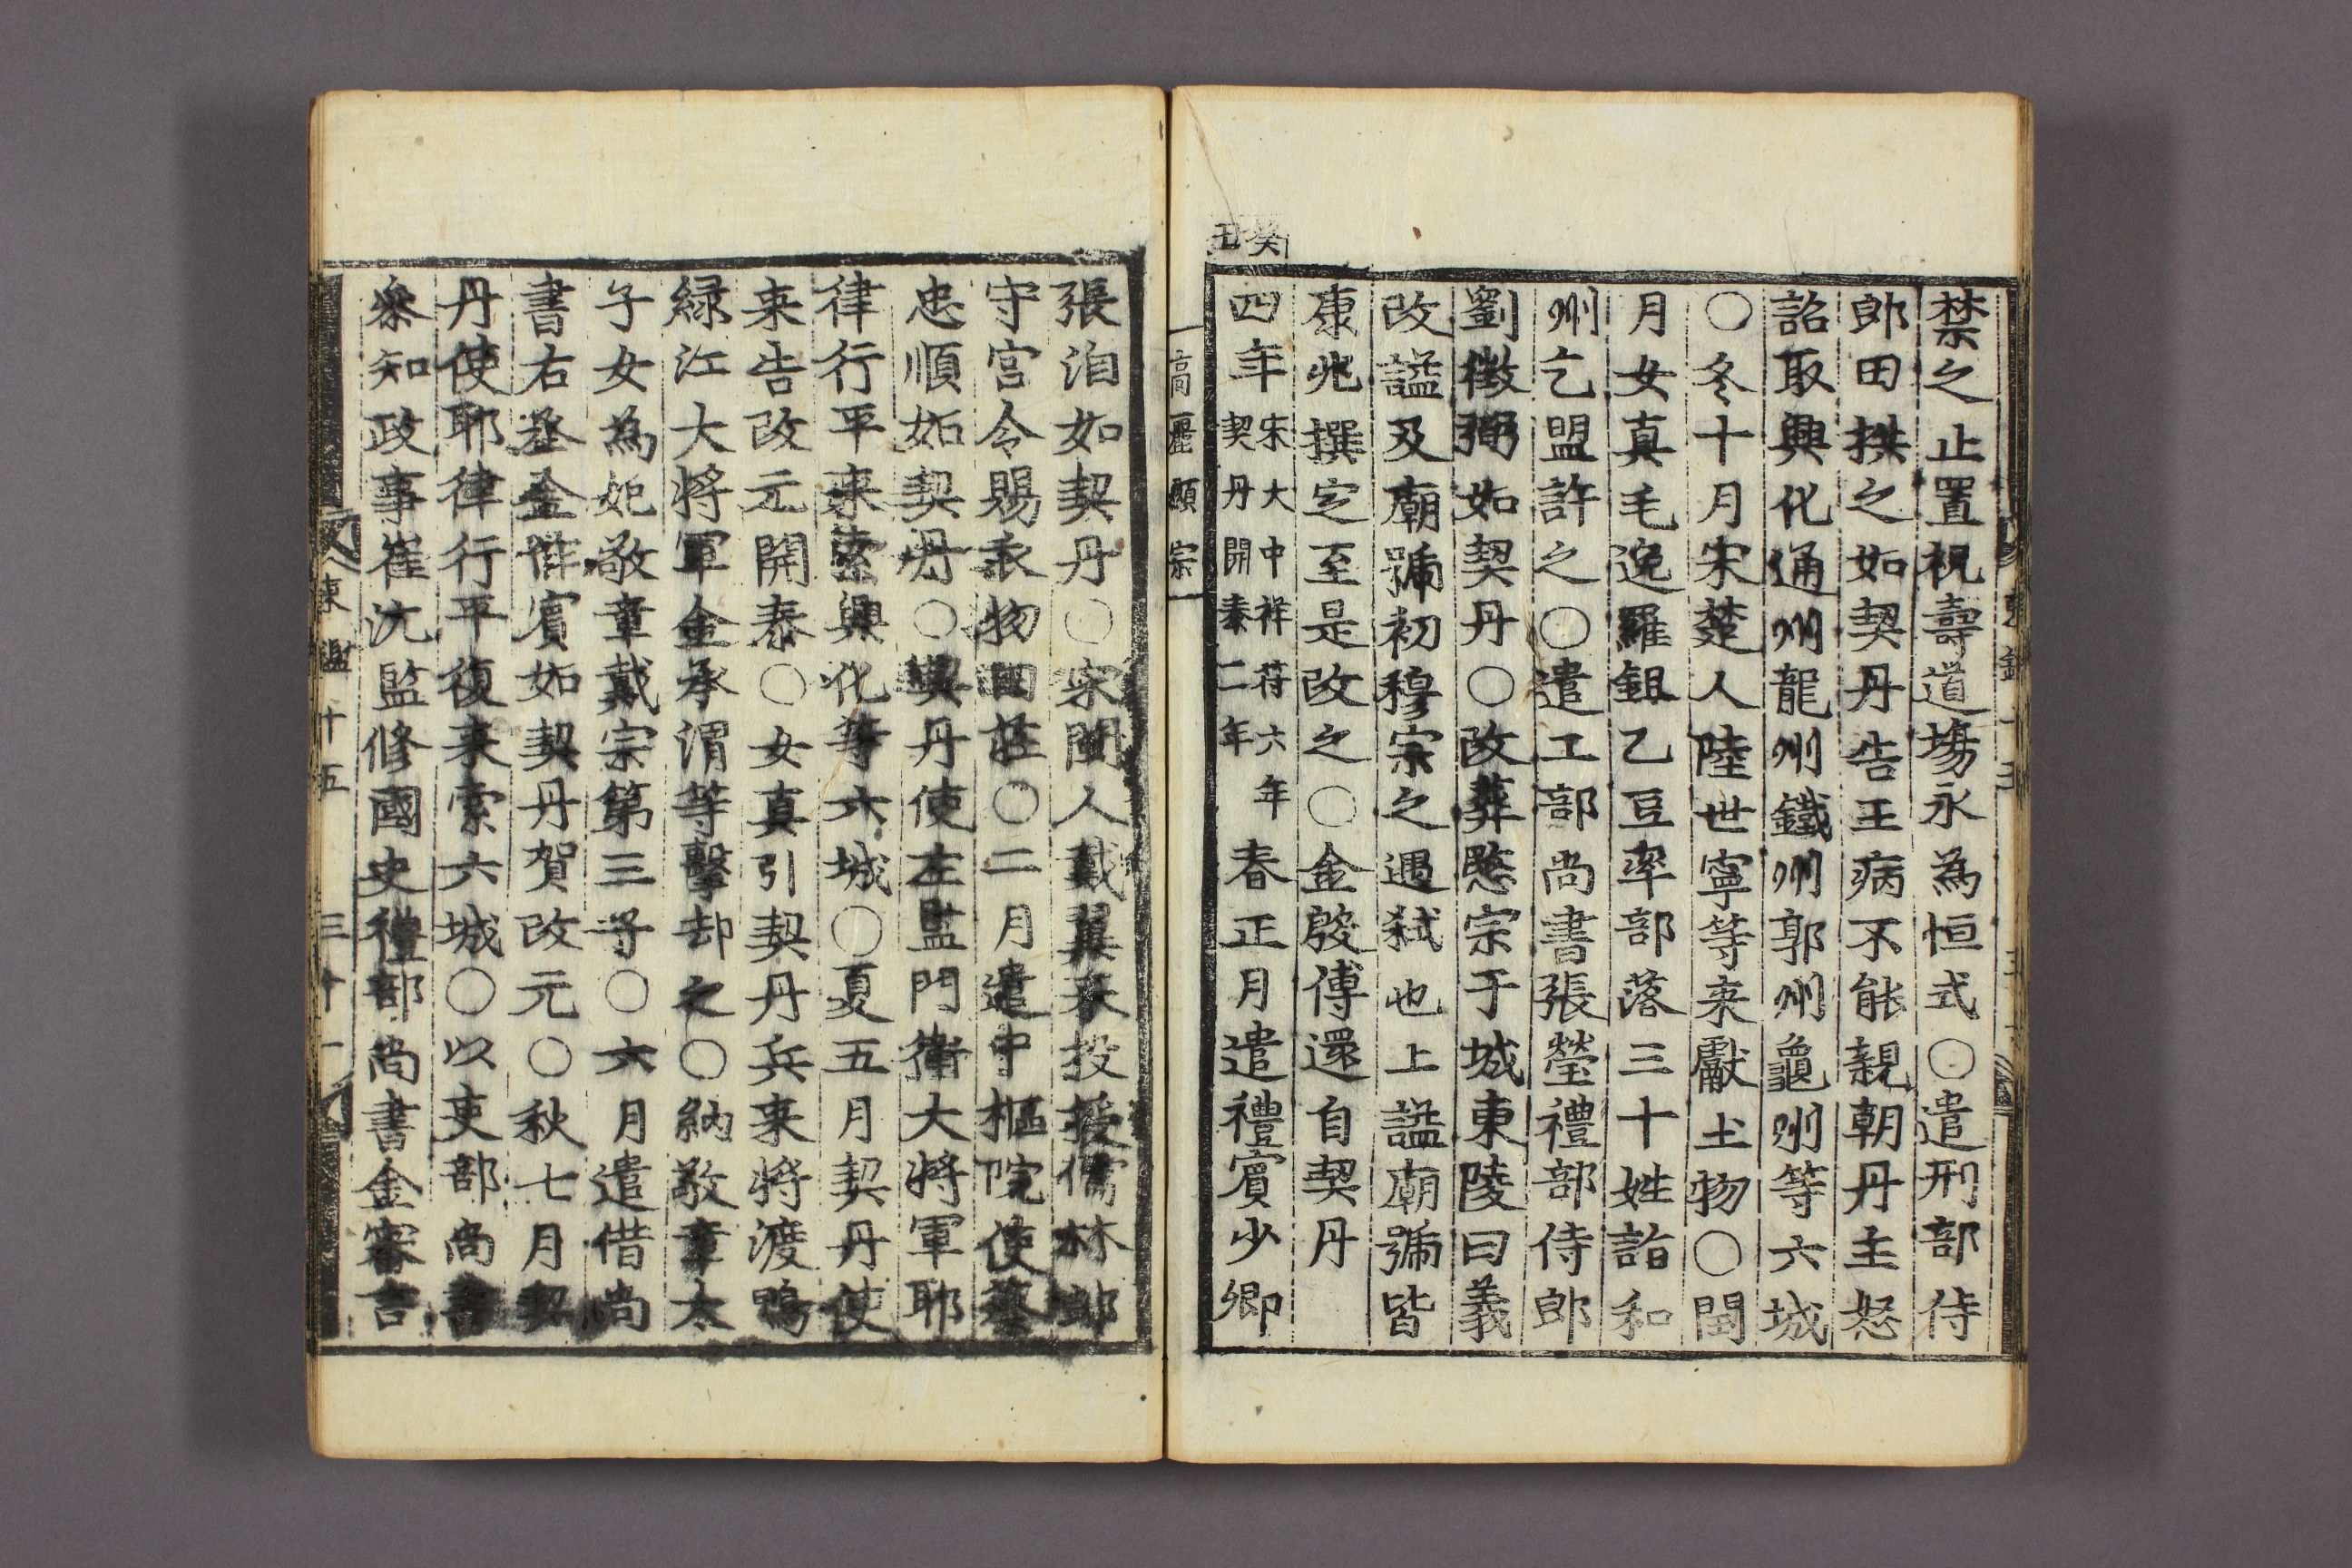 禁之止置祝壽道場永為恒式○遣刑部侍
郎田拱之如契丹告王病不能親朝丹主怒
詔取興化通州龍州鐵州郭州龜州等六城
○冬十月宋楚人陸世寧等来獻土物○閏
月女真毛逸羅鉏乙豆率部落三十姓詣和
州乞盟許之○遣工部尚書張瑩禮部侍郎
劉徵弼如契丹○改葬愍宗于城東陵曰義
改謚及廟號初穆宗之遇弑也上謚廟號皆
康兆撰定至是改之○金殷傅還自契丹
癸丑
四年宋大中祥符六年契丹開泰二年春正月遣禮賓少卿
高麗顯宗
張洎如契丹○宋閩人戴翼来投授儒林郎
守宮令賜衣物田莊○二月遣中樞院使蔡
忠順如契丹○契丹使左監門衛大將軍耶
律行平来索興化等六城○夏五月契丹使
来告改元開泰○女真引契丹兵来將渡鴨
緑江大將軍金承渭等擊却之○納敬章太
子女為妃敬章戴宗第三子○六月遣借尚
書右丞金作賓如契丹賀改元○秋七月契
丹使耶律行平復来索六城○以吏部尚書
叅知政事崔沆監修國史禮部尚書金審言
東鑑十五 三十一